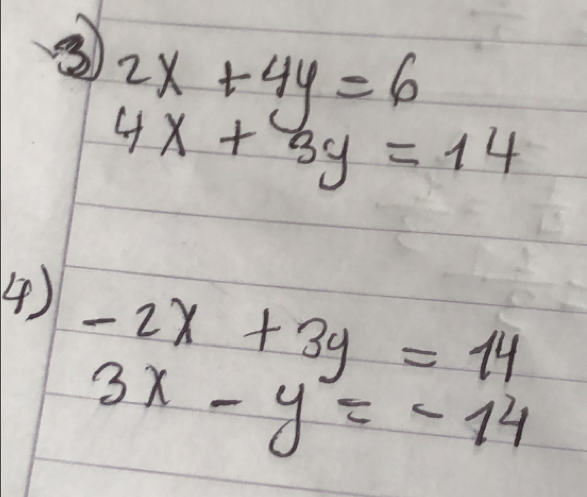 3) 2x + 4y = 6
4x + 3y = 14
4) -2x + 3y = 14
3x - y = -14